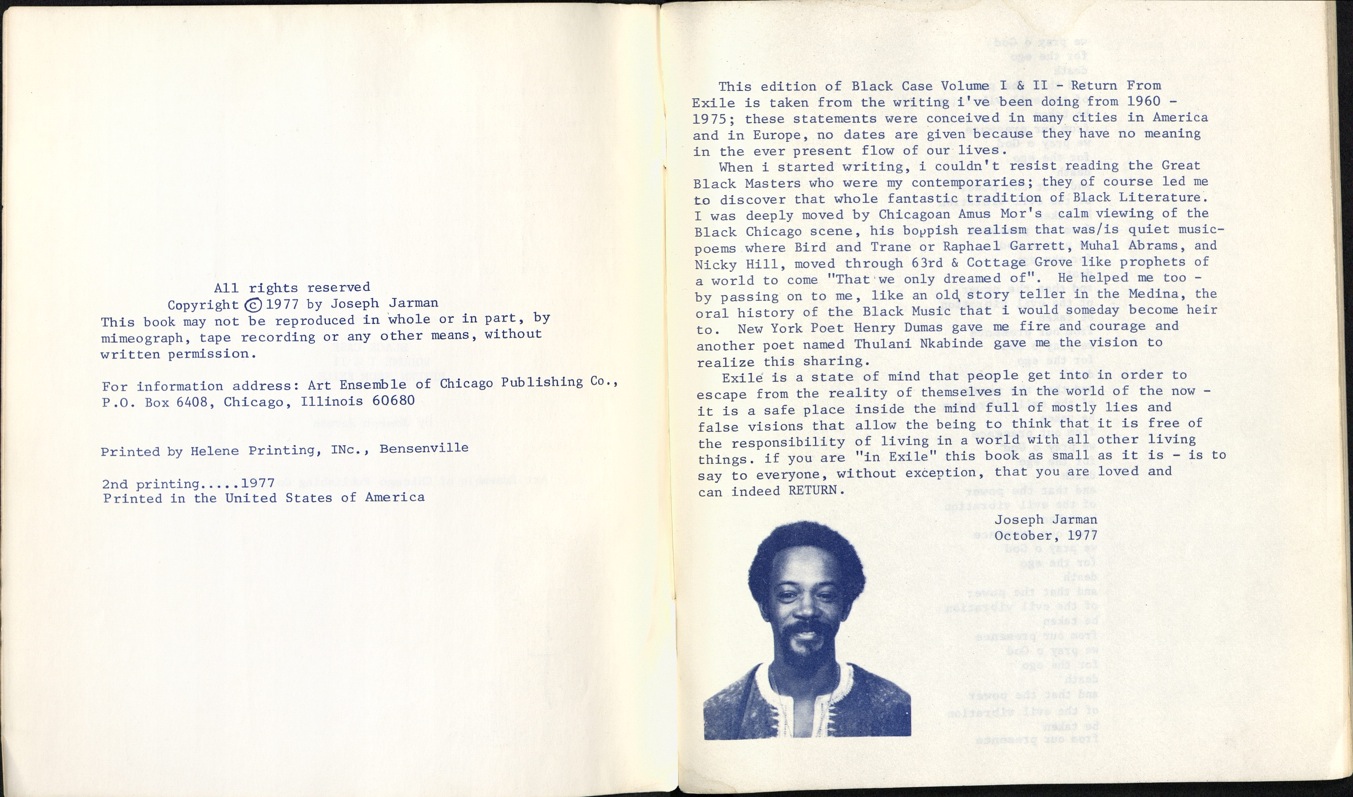 All rights reserved
Copyright © 1977 by Joseph Jarman
This book may not be reproduced in whole or in part, by
mimeograph, tape recording or any other means, without
written permission.
For information address: Art Ensemble of Chicago Publishing Co.,
P.O. Box 6408, Chicago, Illinois 60680
Printed by Helene Printing, INc., Bensenville
2nd printing.....1977
Printed in the United States of America
This edition of Black Case Volume I & II - Return From
Exile is taken from the writing i've been doing from 1960 -
1975; these statements were conceived in many cities in America
and in Europe, no dates are given because they have no meaning
in the ever present flow of our lives.
When i started writing, i couldn't resist reading the Great
Black Masters who were my contemporaries; they of course led me
to discover that whole fantastic tradition of Black Literature.
I was deeply moved by Chicagoan Amus Mor's calm viewing of the
Black Chicago scene, his boppish realism that was/is quiet music-
poems where Bird and Trane or Raphael Garrett, Muhal Abrams, and
Nicky Hill, moved through 63rd & Cottage Grove like prophets of
a world to come "That we only dreamed of". He helped me too -
by passing on to me, like an old story teller in the Medina, the
oral history of the Black Music that i would someday become heir
to. New York Poet Henry Dumas gave me fire and courage and
another poet named Thulani Nkabinde gave me the vision to
realize this sharing.
Exile is a state of mind that people get into in order to
escape from the reality of themselves in the world of the now -
it is a safe place inside the mind full of mostly lies and
false visions that allow the being to think that it is free of
the responsibility of living in a world with all other living
things. if you are "in Exile" this book as small as it is - is to
say to everyone, without exception, that you are loved and
can indeed RETURN.
Joseph Jarman
October, 1977